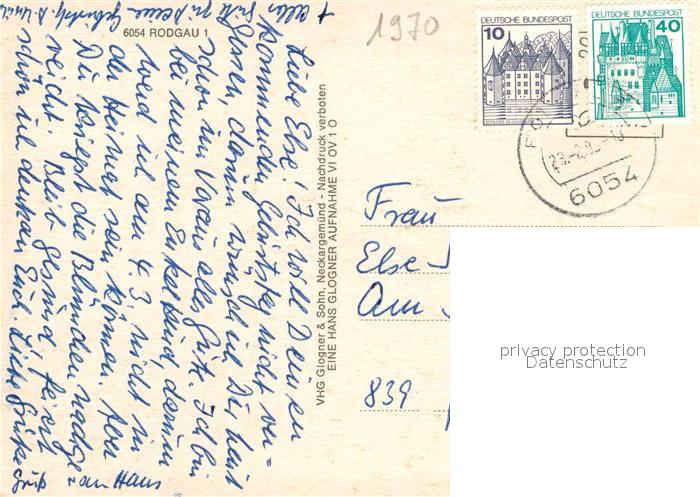 6054 RODGAU 1
1970
DEUTSCHE BUNDESPOST
10
DEUTSCHE BUNDESPOST
40
6054
VHG Glogner & Sohn, Neckargemünd - Nachdruck verboten
EINE HANS GLOGNER AUFNAHME VI OV 1 O
Liebe Else! Ich will Deinen
kommenden Geburtstag nicht ver=
gessen, darum wünsch ich Dir heut
schon im Voraus alles Gute. Ich bin
bei meinem Enkelkind, darum
werd ich am 4.3. nicht in
der Heimat sein können. Aber
Du kriegst die Blumen nachge=
reicht. Bleib gesund, feiert
schön ich denken Euch. Liebe Grüße
Gruß an Hans
+ alles Gute zu Deinem Geburtstag
Frau
Else
Am
839
privacy protection
Datenschutz